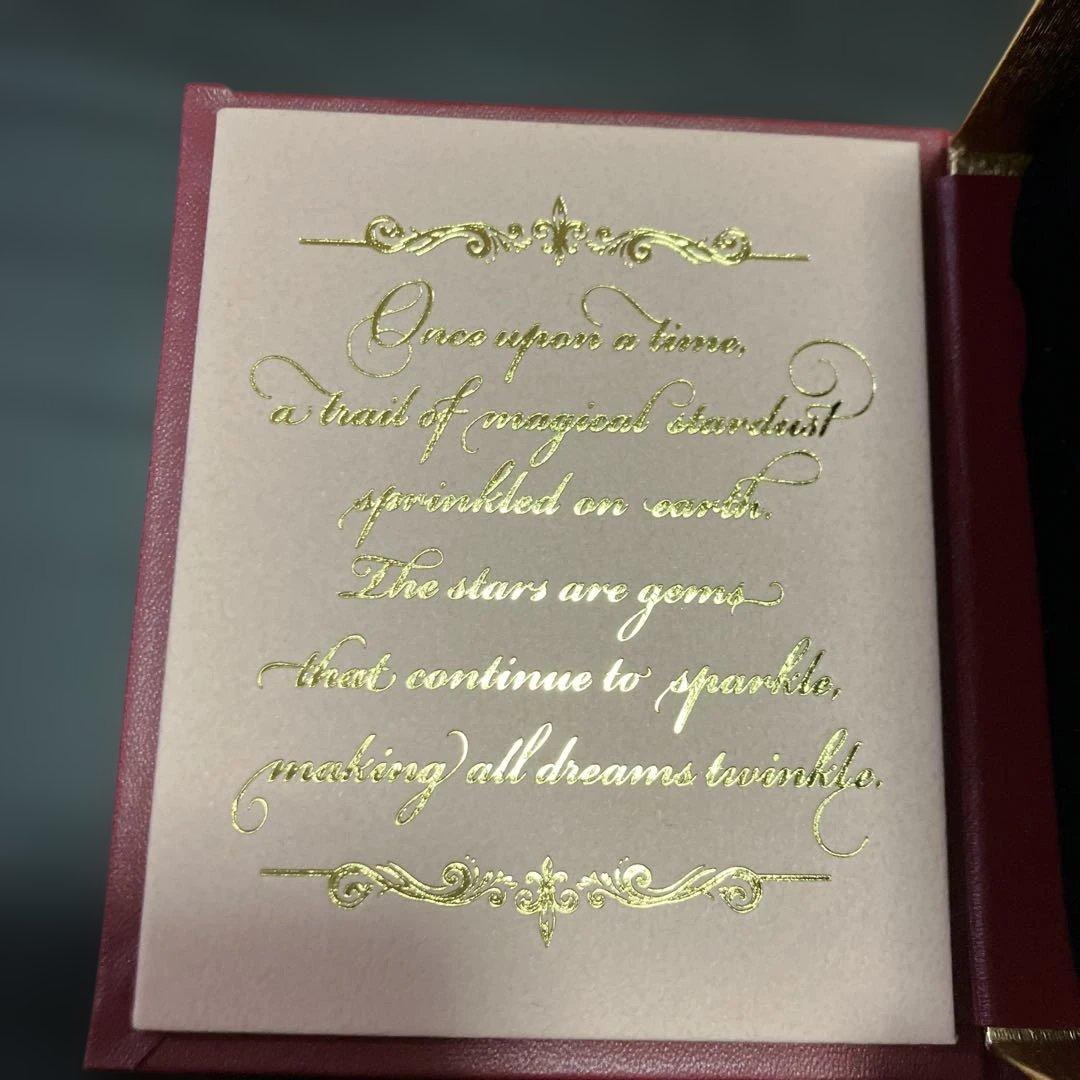 Once upon a time,
a trail of magical stardust
sprinkled on earth.
The stars are gems
that continue to sparkle,
making all dreams twinkle.